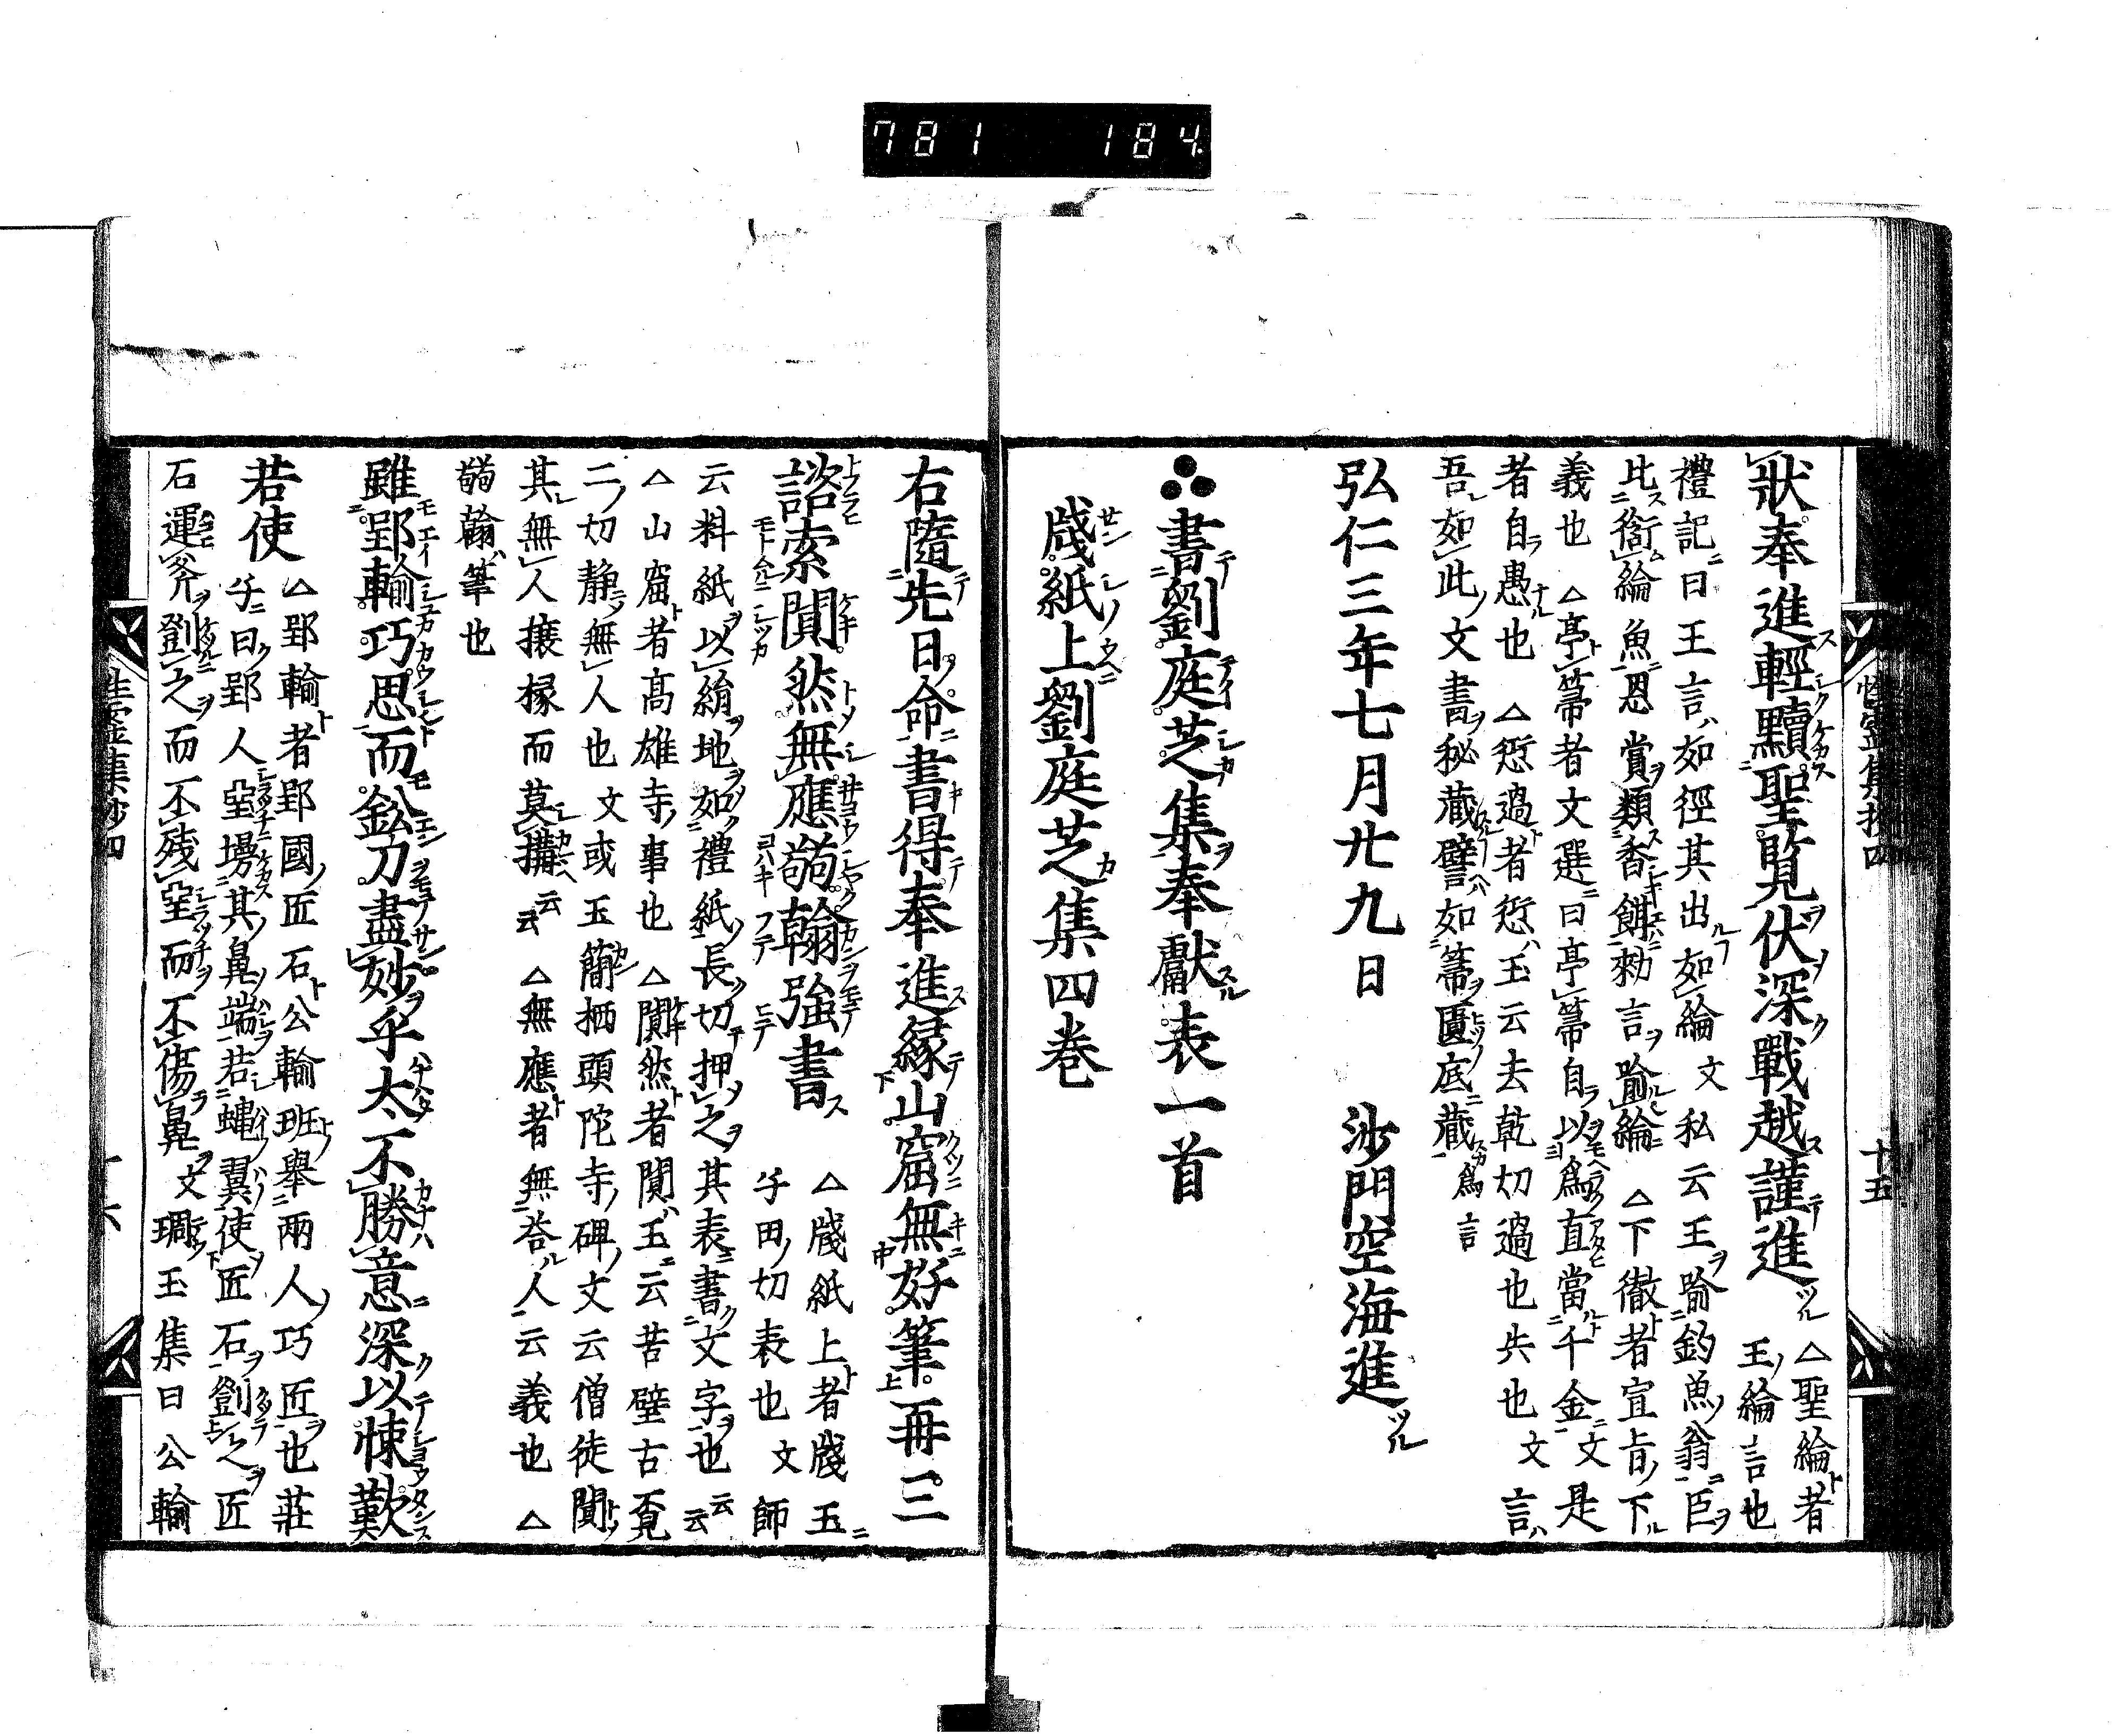 781 184
狀奉進輕黷聖覧伏深戰越謹進 △聖綸者
王綸言也
禮記曰王言如徑其出如綸文私云王喻釣魚翁臣
此衒綸魚恩賞類香餌勅言喻綸 △下徹者宜旨下
義也 △亭帚者文選曰亭帚自以為直當千金文是
者自愚也 △愆過者愆玉云去乾切過也失也文言
吾如此文書秘藏譬如帚匱底藏為言
弘仁三年七月廿九日 沙門空海進
書劉庭芝集奉獻表一首
牋紙上劉庭芝集四巻
右隨先日命書得奉進緣山窟無好筆再三
諮索闃然無應蒭翰強書 △牋紙上者牋玉
子田切表也文師
云料紙以絹地如禮紙長切押之其表書文字也云云
△山窟者高雄寺事也 △闃然者闃玉云苦壁古覔
二切静無人也文或玉簡栖頭陀寺碑文云僧徒闃
其無人攘椽而莫搆云云 △無應者無荅人云義也 △
蒭翰筆也
雖郢輸巧思而鈆刀盡妙乎太不勝意深以悚歎
若使 △郢輸者郢國匠石公輸班舉兩人巧匠也莊
子曰郢人堊墁其鼻端若蠅翼使匠石劉之匠
石運斧劉之而不残堊而不傷鼻文琱玉集曰公輸
性霊集抄四 十五